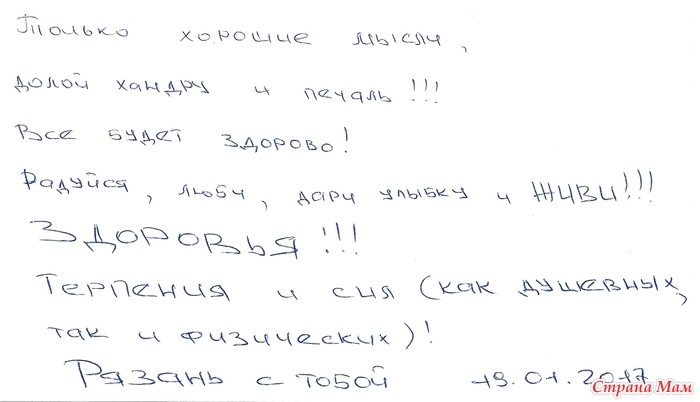 Только хорошие мысли,
долой хандру и печаль!!!
Все будет здорово!
Радуйся, люби, дари улыбку и ЖИВИ!!!
ЗДОРОВЬЯ!!!
Терпения и сил (как душевных,
так и физических)!
Рязань с тобой 19.01.2017
Страна Мам